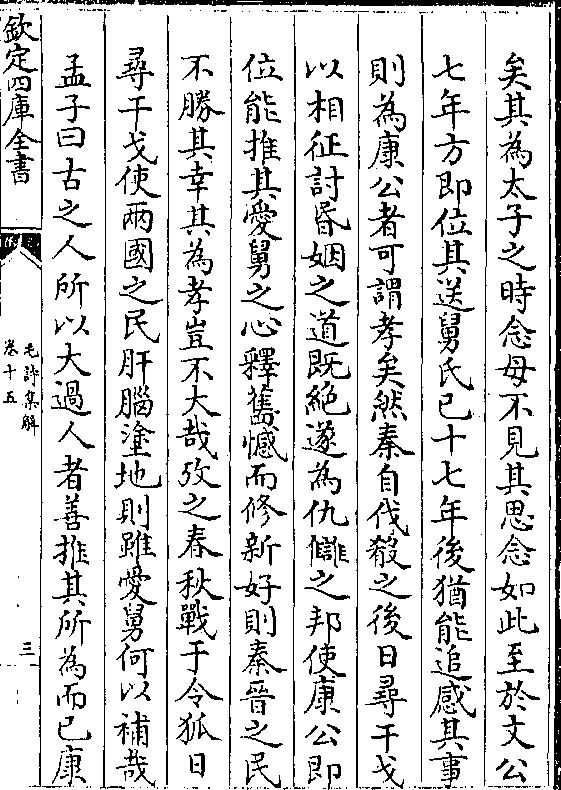 矣其為太子之時念母不見其思念如此至於文公
七年方即位其送舅氏已十七年後猶能追感其事
則為康公者可謂孝矣然秦自伐殽之後日尋干戈
以相征討昬姻之道既絶遂為仇讎之邦使康公即
位能推其愛舅之心釋舊憾而修新好則秦晉之民
不勝其幸其為孝豈不大哉攷之春秋戰于令狐日
尋干戈使兩國之民肝腦塗地則雖愛舅何以補哉
孟子曰古之人所以大過人者善推其所為而已康
欽定四庫全書
毛詩集解
卷十五
三